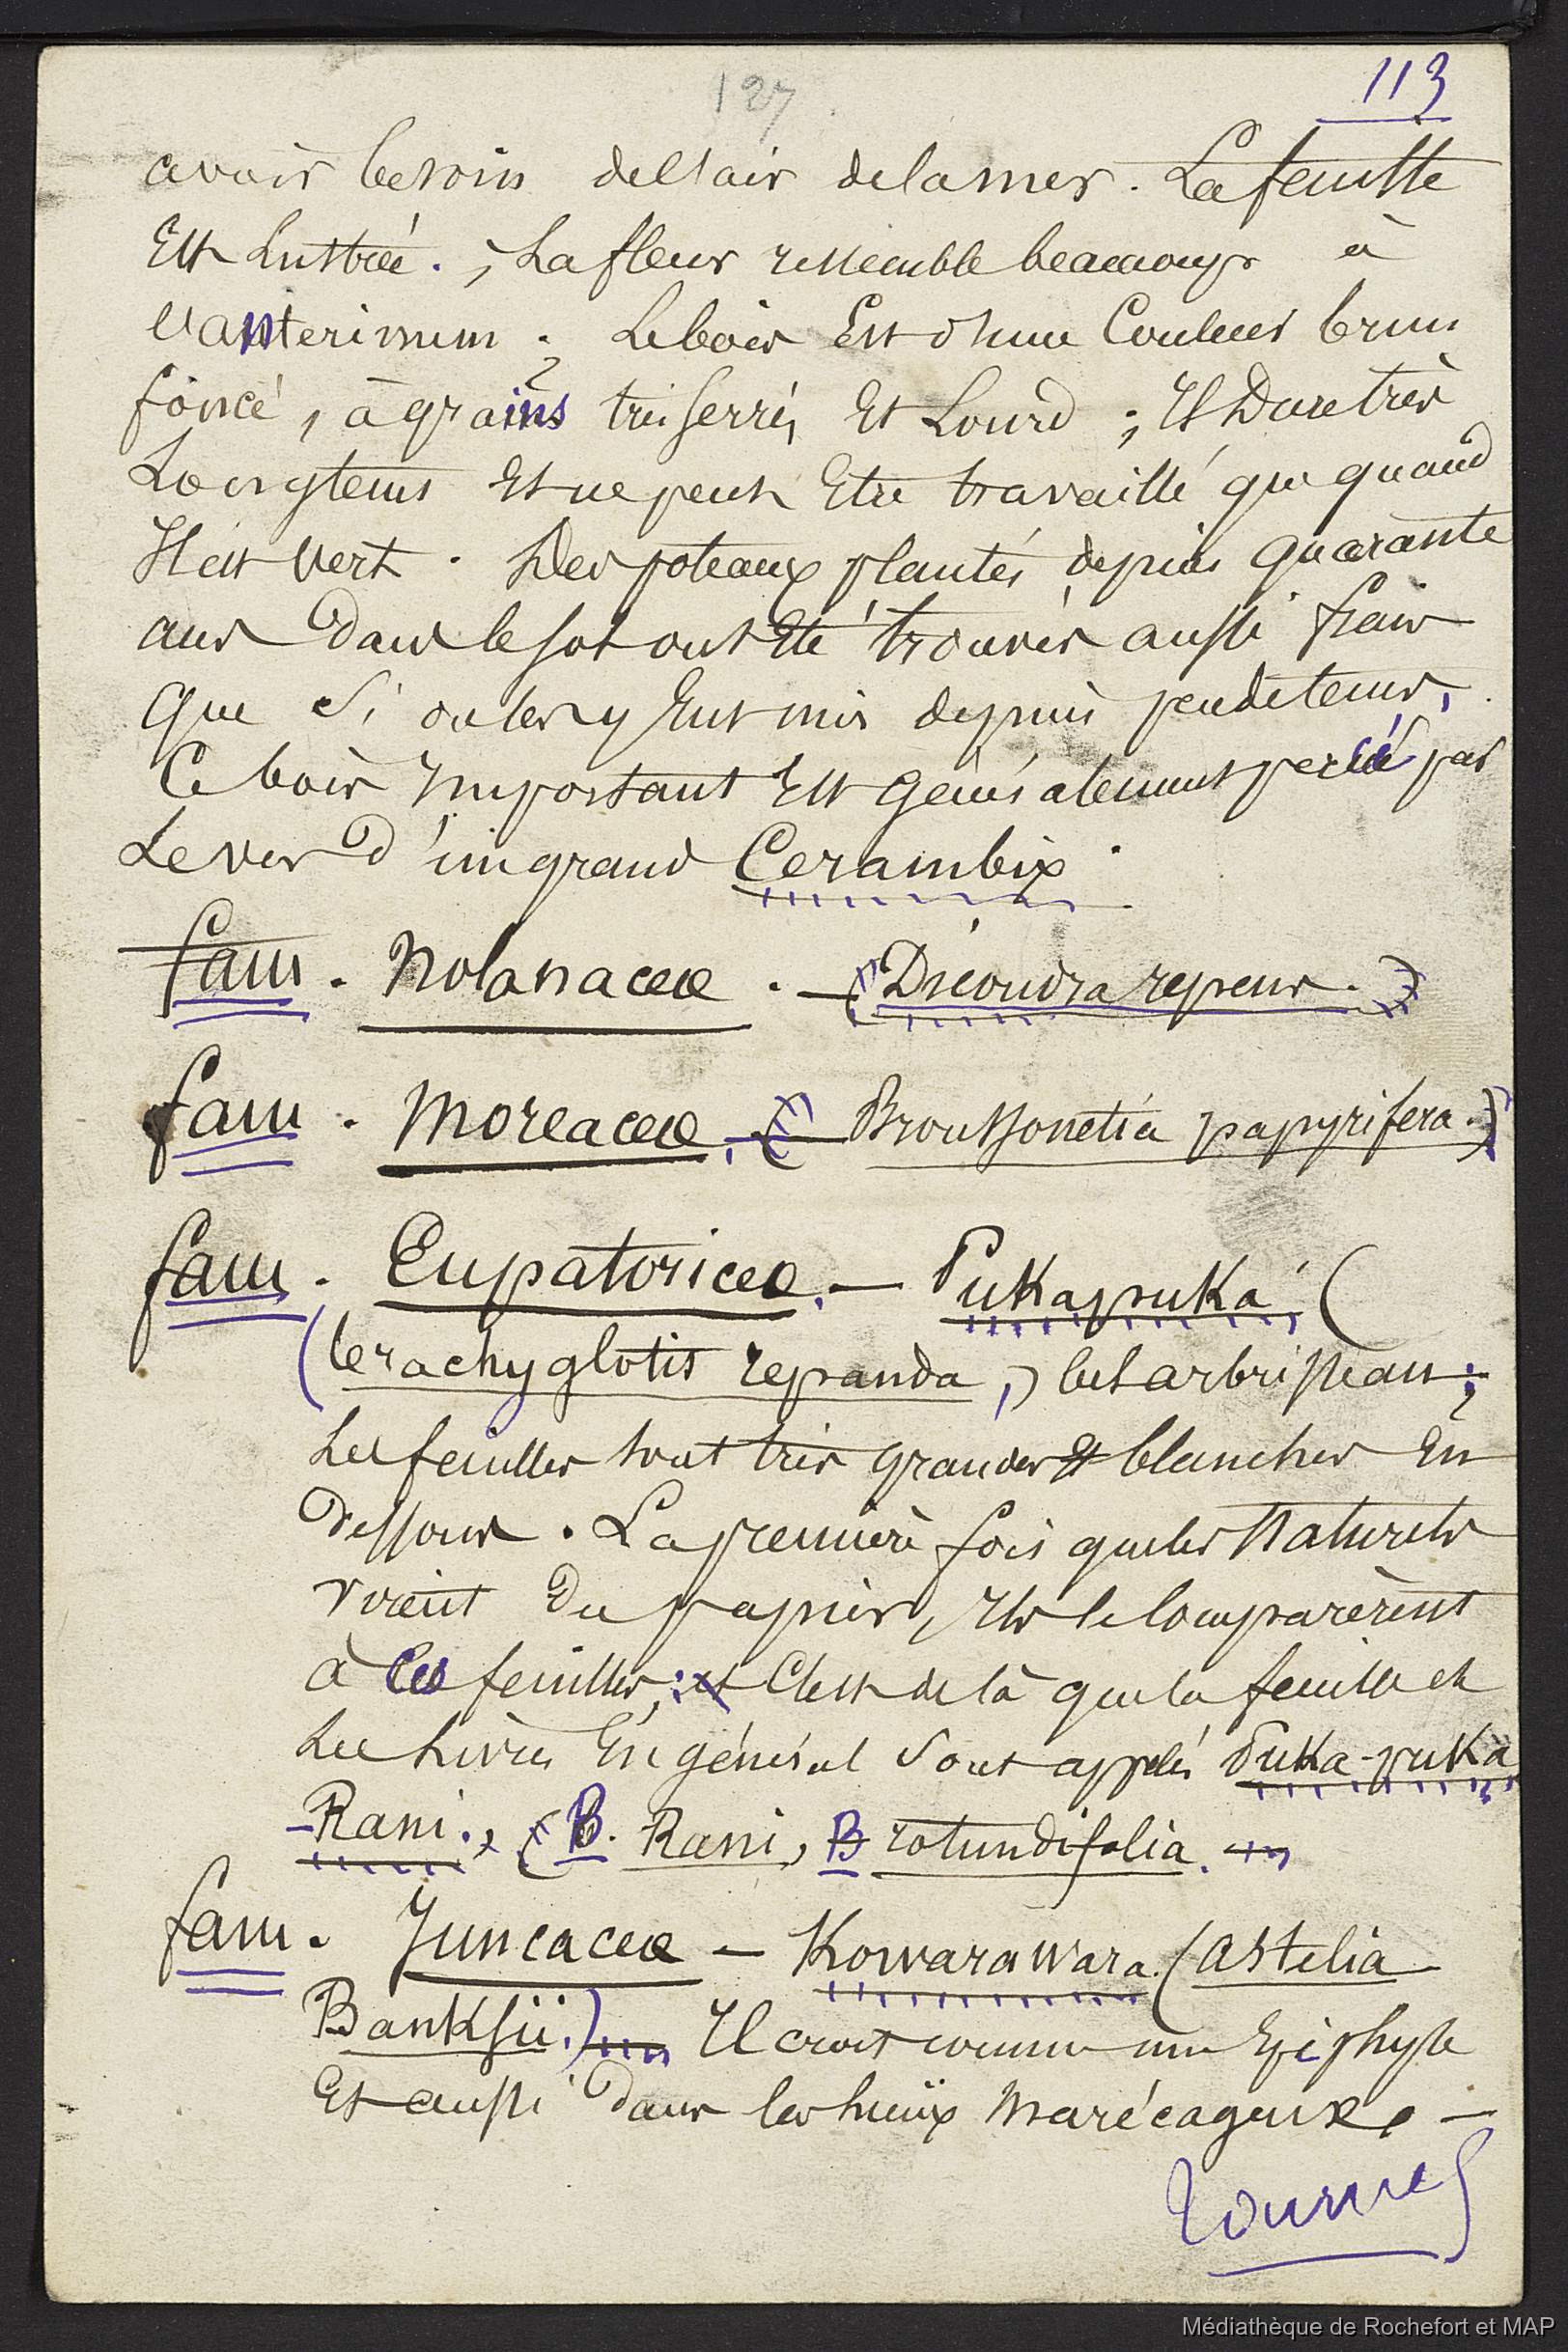 127
113
avoir besoin de l'air de la mer. La feuille
Est Lustrée. ; La fleur ressemble beaucoup à
l'anterinum ; Le bois Est d'une Couleur brun
foncé, à grains très serrés Et Lourd ; Il Dure très
Longtems Et ne peut Etre travaillé que quand
Il est vert. Des poteaux plantés depuis quarante
ans dans le sol ont Eté trouvés aussi frais
que si on les y Eut mis depuis peu de tems,
Ce bois Important Est généralement percé par
Le ver d'un grand Cerambix.
fam. Nolanaceæ. — (Dicondra repens.)
fam. Moreaceæ. — (Broussonetia papyrifera.)
fam. Eupatoriceæ. — Pukapuka (
(brachyglotis repanda,) bel arbrisseau ;
Les feuilles sont très grandes Et blanches En
dessous. La première fois que les Naturels
virent du papier, Ils le comparèrent
à Ces feuilles, : et C'est de là que la feuille et
Les Livres En général sont appelés Puka-puka
-Rani., (B. Rani, B rotundifolia. —
fam. Juncaceæ — Kowarawara. (Astelia
Banksii.) — Il croit comme un Epiphyte
Et aussi dans les lieux marécageux. —
Tournez
Médiathèque de Rochefort et MAP